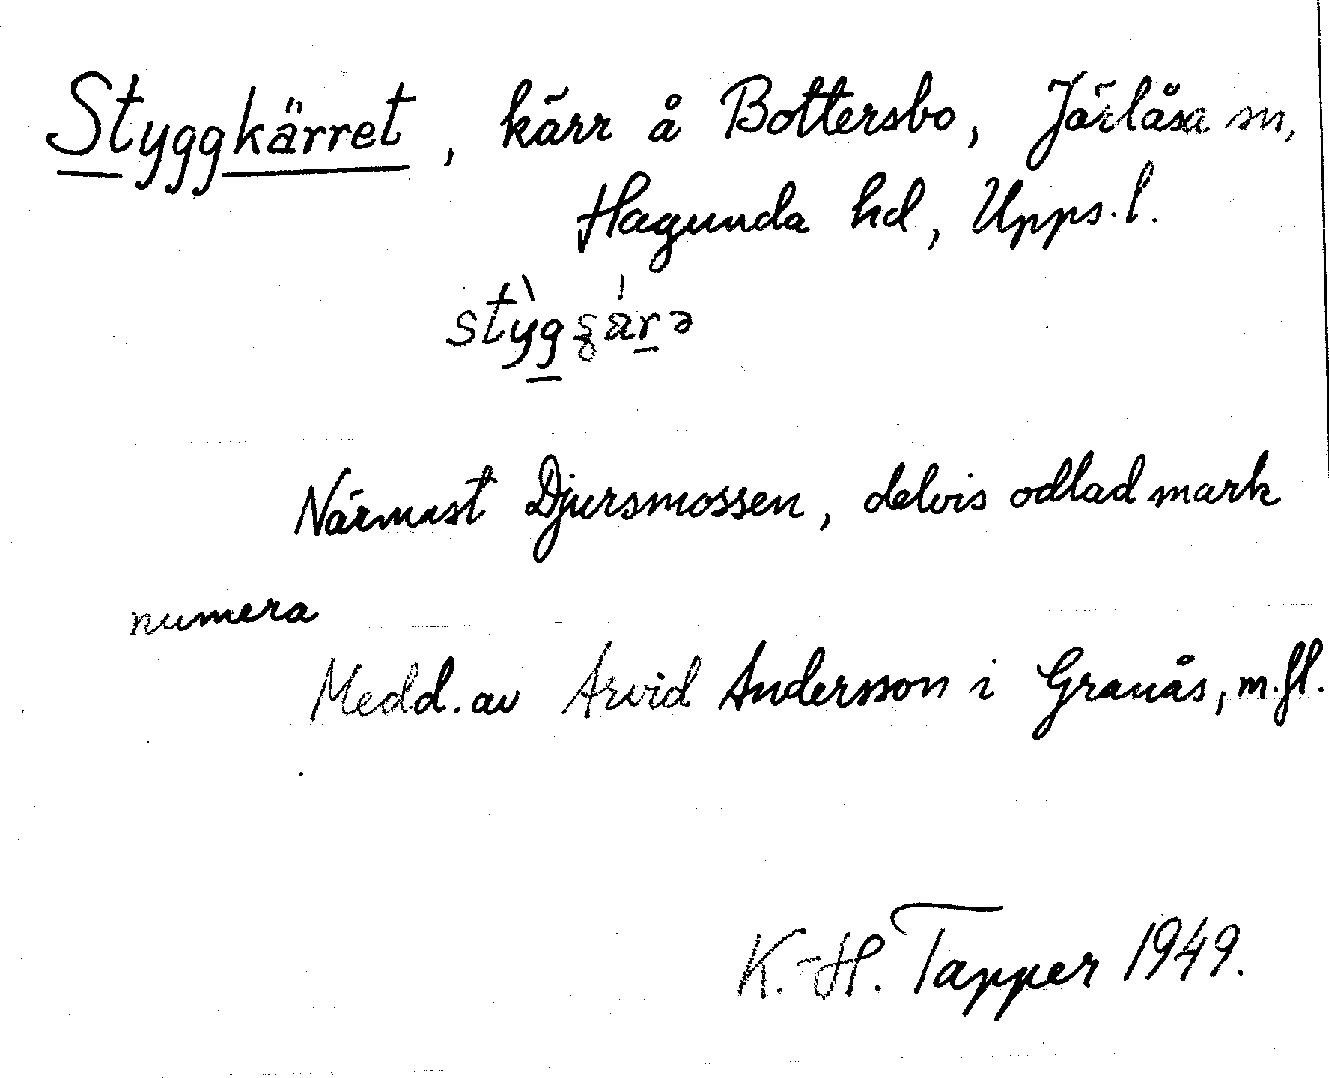 Styggkärret, kärr å Bottersbo, Järlåsa sn,
Hagunda hd, Upps. l.
Närmast Djursmossen, delvis odlad mark
numera
Medd. av Arvid Andersson i Granås, m.fl.
K.-H. Tapper 1949.